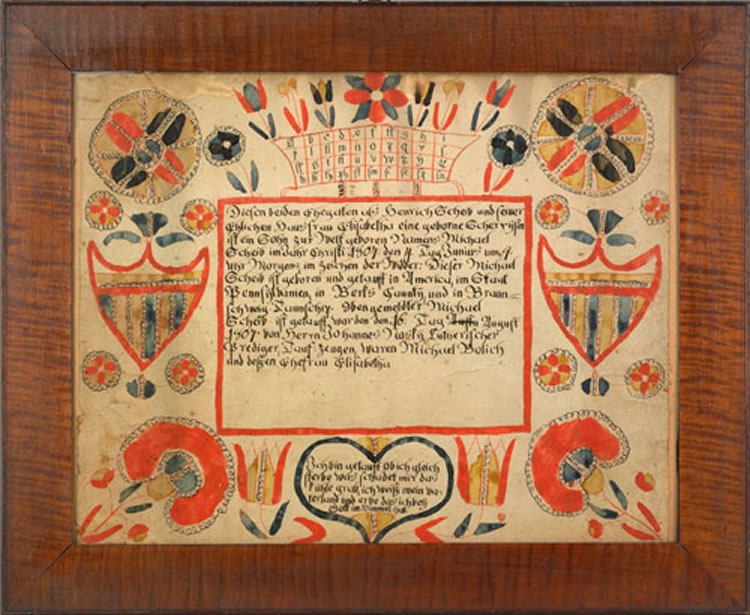 Diesen beiden Ehegatten als Henrich Scheib und seiner
Ehlichen Hausfrau Elisabetha eine geborne
ist ein Sohn zur Welt geboren Namens Michael
Scheib im Jahr Christi 1807 den 4. Tag Junius um 4
uhr Morgens im Zeichen der Dieser Michael
Scheib ist geboren und getauft in America, im Staat
Pennsylvanien, in Berks Caunty und in Braun
schweig Taunschip. Obengemeldter Michael
Scheib ist getauft worden den 16. Tag August
1807. von Herrn Johannes Lutherischer
Prediger, Taufzeugen, waren Michael Bolich
und deßen Ehefrau Elisabetha
Ich bin getauft ob ich gleich
sterbe was schadet mir das
kühle grab, ich weiß mein va
terland und erbe das ich bey
Gott im Himmel hab